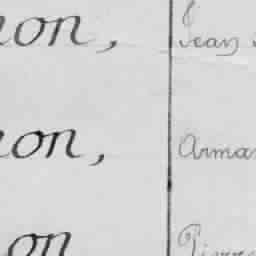 non, Jean
non, Arman
on Pierre